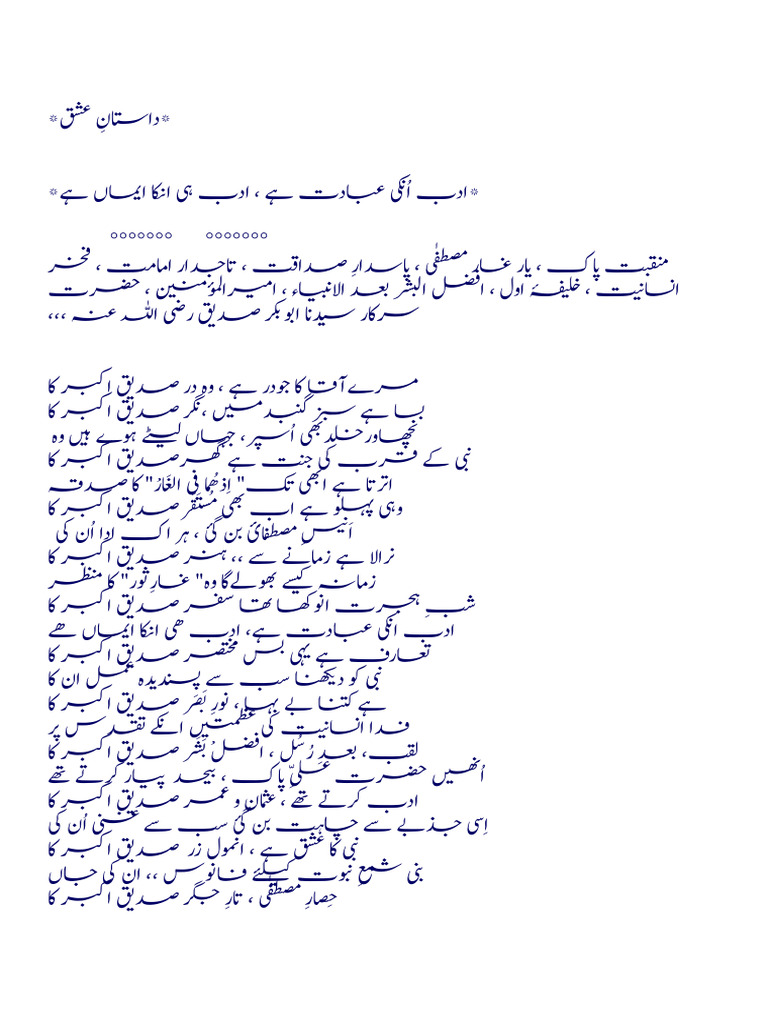 *داستانِ عشق*
*ادب اُنکی عبادت ہے ، ادب ہی انکا ایماں ہے*
°°°°°°° °°°°°°°
منقبت پاک ، یار غار مصطفٰی ، پاسدارِ صداقت ، تاجدار امامت ، فخر
انسانیت ، خلیفۂ اول ، افضل البشر بعد الانبیاء ، امیرالمؤمنین ، حضرت
سرکار سیدنا ابو بکر صدیق رضی اللہ عنہ ،،،
مرے آقا کا جودر ہے ، وہ در صدیق اکبر کا
بسا ہے سبز گنبدمیں ،نگر صدیق اکبر کا
نچھاورخلدبھی اُسپر ، جہاں لیٹے ہوے ہیں وہ
نبی کے قرب کی جنت ہے گھرصدیق اکبر کا
اترتا ہے ابھی تک" اِذْھُما فِی الغَارْ" کا صدقہ
وہی پہلو ہے اب بھی مُستَقَر صدیق اکبر کا
اَنیسِ مصطفائ بن گئ ، ہر اک ادا اُن کی
نرالا ہے زمانے سے ،، ہنر صدیق اکبر کا
زمانہ کیسے بھولےگا وہ" غارِ ثور" کا منظر
شبِ ہجرت انوکھا تھا سفر صدیق اکبر کا
ادب انکی عبادت ہے، ادب ھی انکا ایماں ھے
تعارف ہے یہی بس مختصر صدیق اکبر کا
نبی کو دیکھنا سب سے پسندیدہ عمل ان کا
ہے کتنا بے بہا، نورِ بَصَر صدیق اکبر کا
فدا انسانیت کی عظمتیں انکے تقدس پر
لقب، بعدِ رُسُل ، افضلْ بَشَر صدیق اکبر کا
اُنھیں حضرت علیّ پاک ، بیحد پیار کرتے تھے
ادب کرتے تھے ، عثمان و عمر صدیق اکبر کا
اِسی جذبے سے چاہت بن گئ سب سے غنی اُن کی
نبی کا عشق ہے ، انمول زر صدیق اکبر کا
بنی شمعِ نبوت کیلئے فانوس ،، ان کی جاں
حِصارِ مصطفٰی ، تارِ جگر صدیق اکبر کا